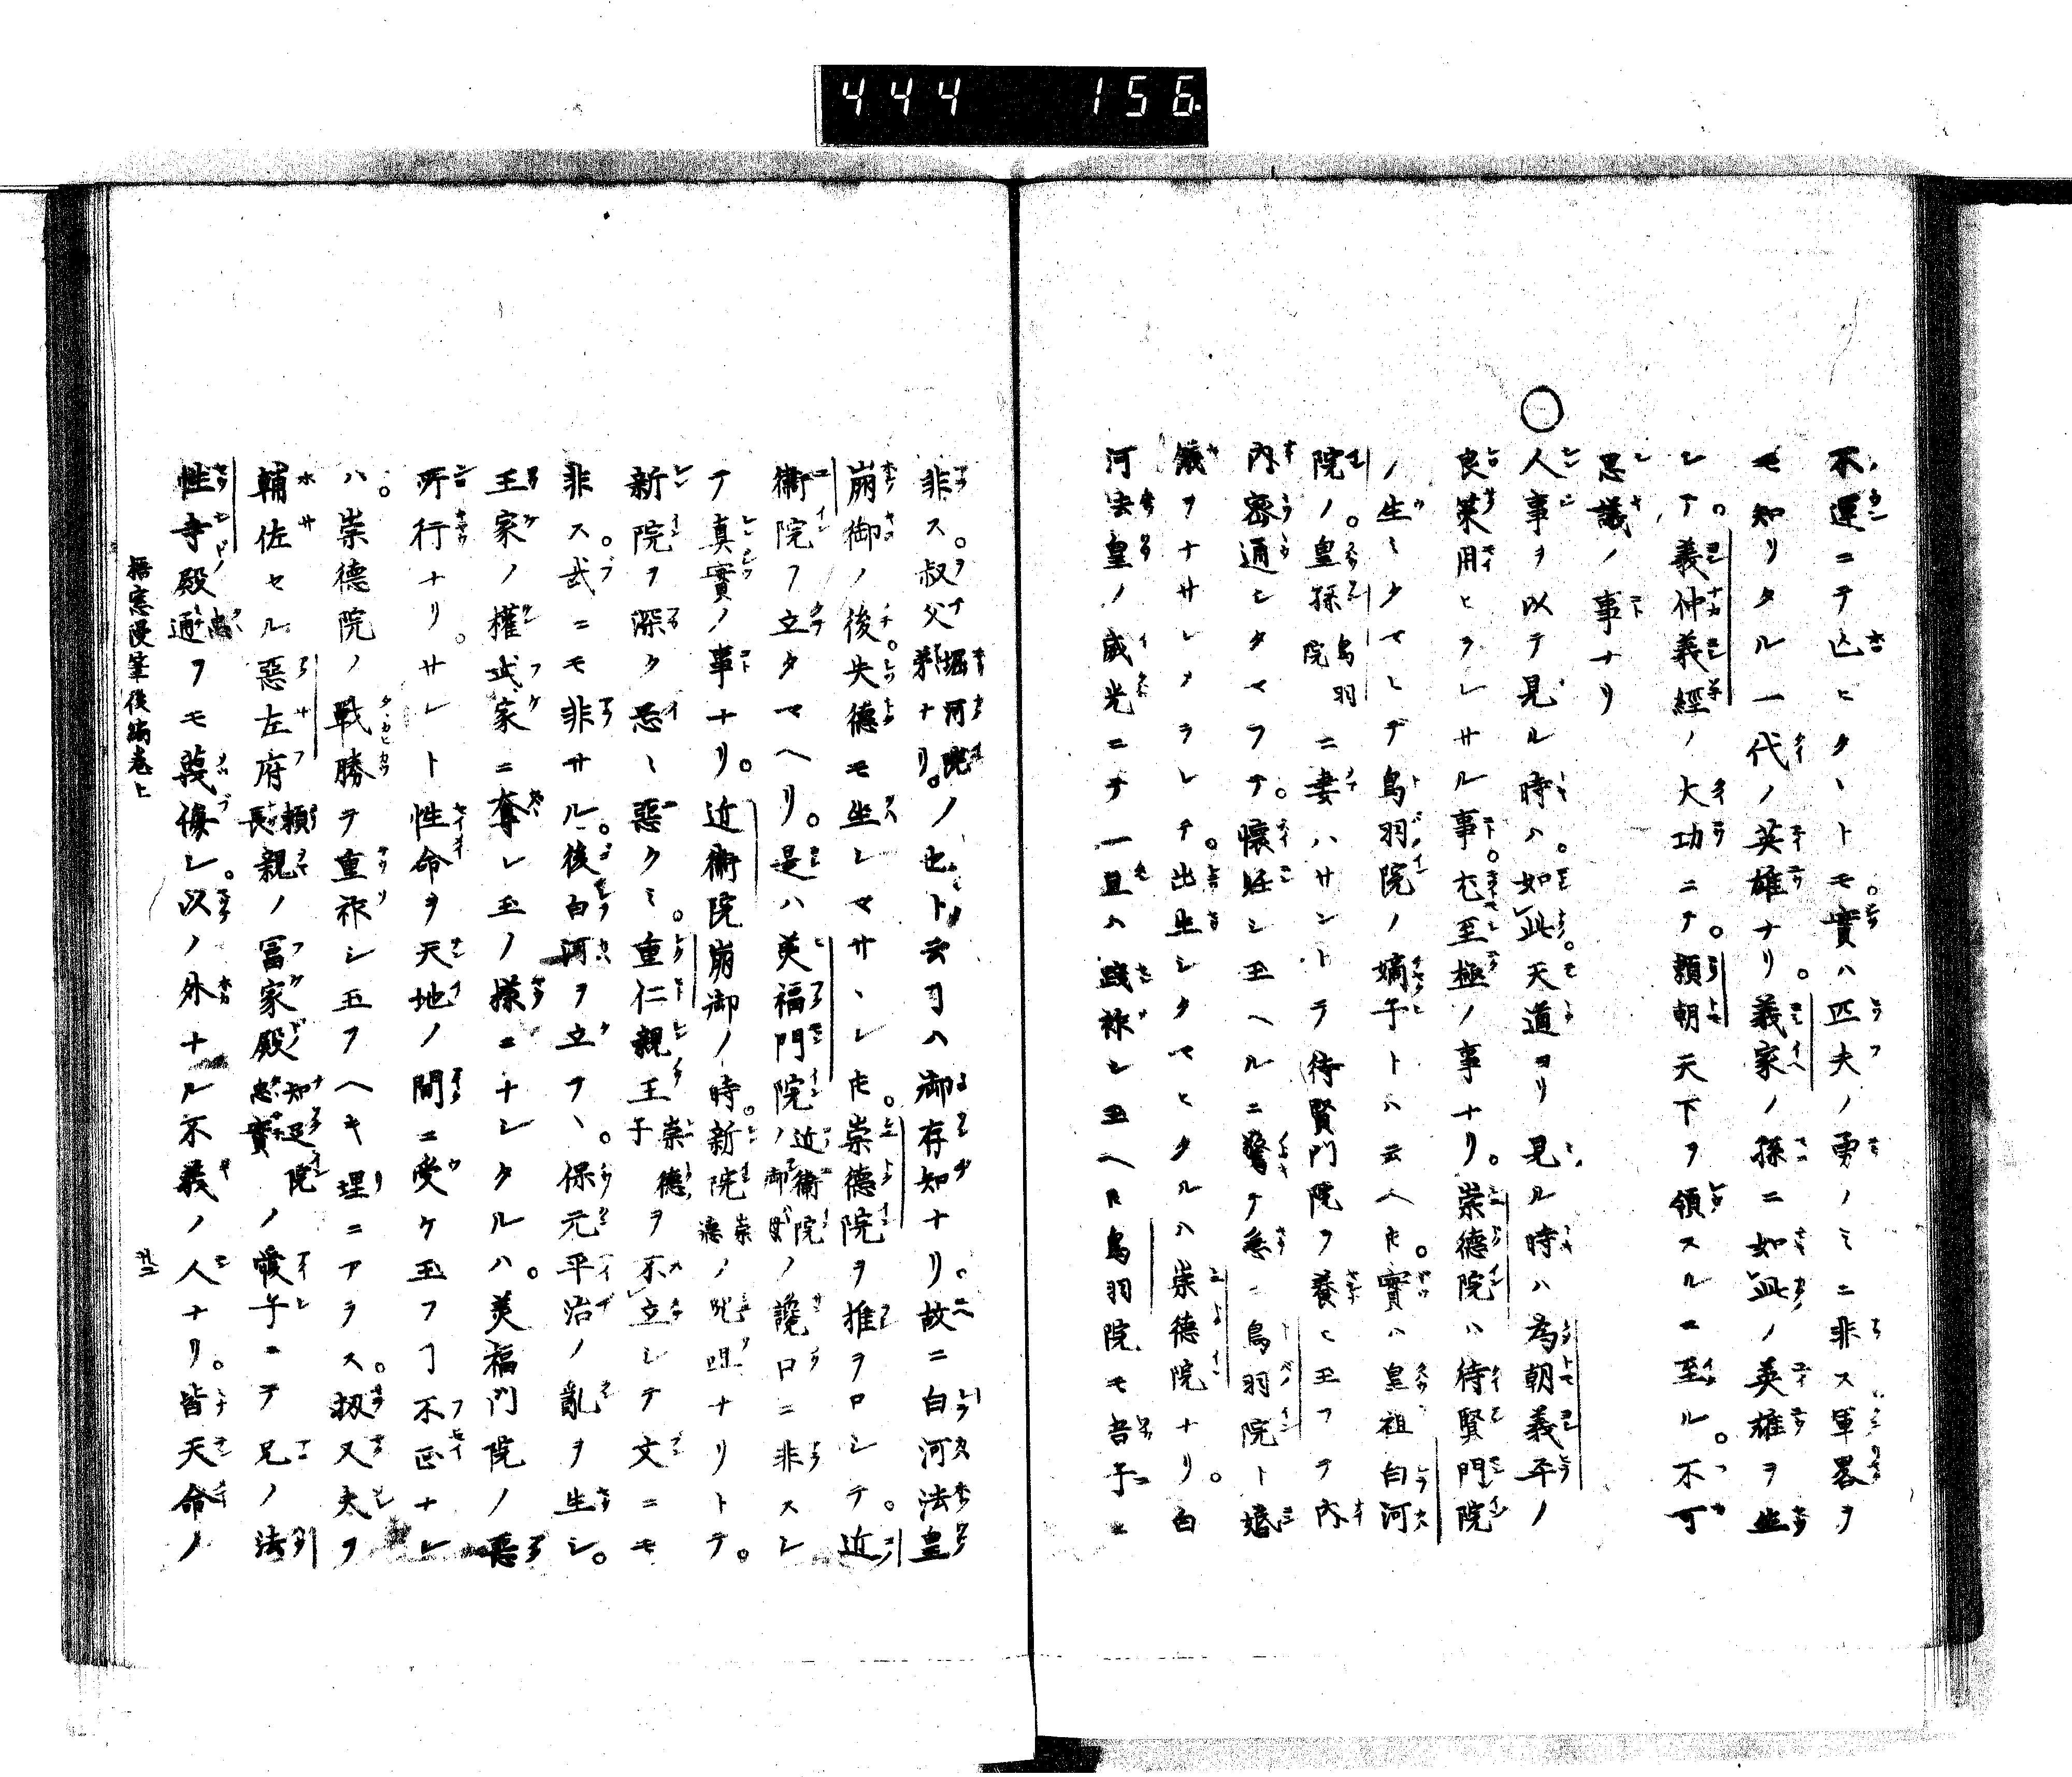 444 156
不運ニテ亡ヒタヽトモ實ハ匹夫ノ勇ノミニ非ス軍畧ヲ
モ知リタル一代ノ英雄ナリ。義家ノ孫ニ如此ノ英雄ヲ生
レテ。義仲義經ノ大功ニテ。頼朝天下ヲ領スルニ至ル。不可
思議ノ事ナリ
○人事ヲ以テ見ル時ハ。如此。天道ヨリ見ル時ハ為朝義平ノ
良策用ヒラレサル事。尤至極ノ事ナリ。崇德院ハ待賢門院
ノ生ミタマヒテ鳥羽院ノ嫡子トハ云ヘ𪜈。實ハ皇祖白河
院ノ。皇孫鳥羽院ニ妻ハサントテ待賢門院ヲ養ヒ玉フテ内
内密通シタマフテ。懷妊シ玉ヘルニ驚テ急ニ鳥羽院ト婚
儀ヲナサレメラレテ。出生シタマヒタルハ崇德院ナリ。白
河法皇ノ威光ニテ一旦ハ踐祚シ玉ヘ𪜈鳥羽院モ吾子ニ
非ス。叔父堀河院弟ナリ。ノ也ト云ヿハ御存知ナリ。故ニ白河法皇
崩御ノ後。失德モ坐シマサヽレ𪜈。崇德院ヲ推ヲロシテ。近
衞院ヲ立タマヘリ。是ハ美福門院近衞院ノ御母ノ讒口ニ非スシ
テ真實ノ事ナリ。近衞院崩御ノ時。新院崇德ノ呪咀ナリトテ。
新院ヲ深ク忌ミ惡クミ。重仁親王崇德子ヲ不立シテ文ニモ
非ス。武ニモ非サル。後白河ヲ立フヽ。保元平治ノ亂ヲ生シ。
王家ノ權武家ニ奪レ玉ノ樣ニナシタルハ。美福門院ノ惡
所行ナリ。サレト性命ヲ天地ノ間ニ受ケ玉フヿ不正ナレ
ハ。崇德院ノ戰勝ヲ重祚シ玉フヘキ理ニアラス。扨又夫ヲ
輔佐セル惡左府頼長親ノ冨家殿知足院忠實ノ愛子ニテ兄ノ法
性寺殿忠通ヲモ蔑侮シ。以ノ外ナル不義ノ人ナリ。皆天命ノ
梧窓漫筆後編卷上 廿二